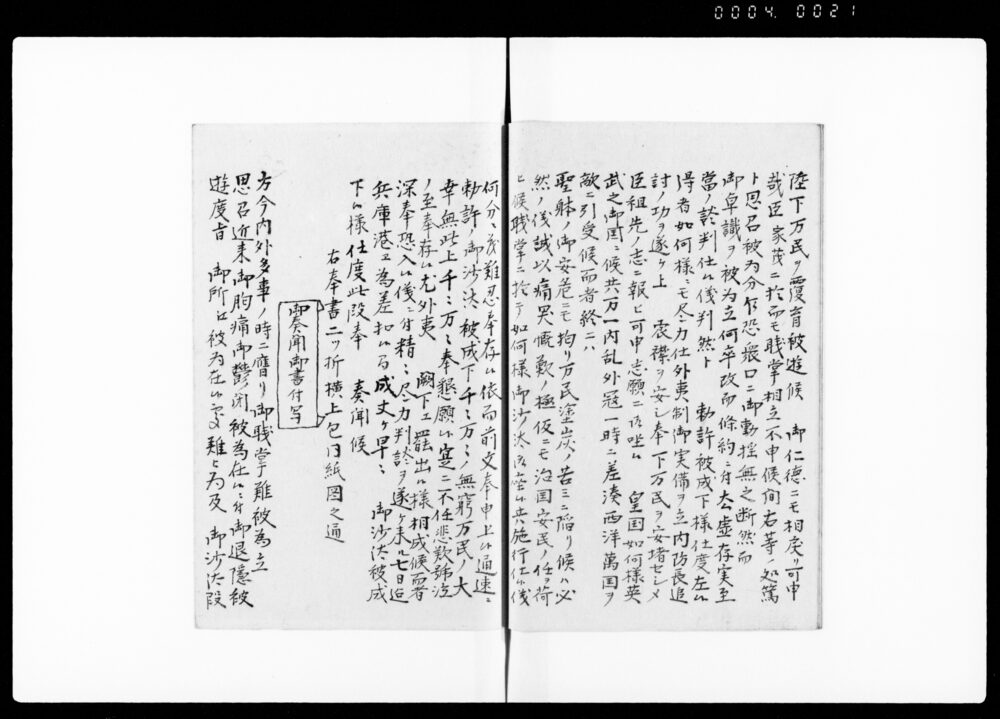 0004 0021
陸下万民ヲ覆育被遊候 御仁徳ニモ相戻リ可申
哉臣家茂ニ於而モ職掌相立不申候間右等ノ処篤
ト思召被為分乍恐衆口ニ御動揺無之断然而
御卓識ヲ被為立何卒改而条約ニ付 去虚存実至
当ノ談判仕候儀判然ト 勅許被成下様仕度左候
得者如何様ニモ尽力仕外夷制御実備ヲ立内防長追
討ノ功ヲ遂ケ上 宸襟ヲ安シ奉下万民ヲ安堵セシメ
臣祖先ノ志ニ報ヒ可申志願ニ御坐候 皇国如何様英
武之御国ニ候共万一内乱外冠一時ニ差湊西洋萬国ヲ
敵ニ引受候而者終ニハ
聖躰ノ御安危ニモ拘リ万民塗炭ノ苦ミニ陥リ候ハ必
然ノ儀誠以痛哭慨歎ノ極仮ニモ治国安民ノ任ヲ荷
ヒ候職掌ニ於テ如何様 御沙汰御座候共施行仕候儀
何分ニ茂難忍奉存候依而前文奉申上候通速ニ
勅許ノ御沙汰被成下千ニ万ニモ無窮万民ノ大
幸無此上千ニ万ニ奉懇願候寔ニ不任悲歎號泣
ノ至奉存候尤外夷 闕下ェ罷出候様相成候而者
深奉恐入候儀ニ付精ニ尽力判談ヲ遂ケ来ル七日迠
兵庫港ェ為差扣候間成丈ケ早ニ 御沙汰被成
下候様仕度此段奉 奏聞候
右奉書二ツ折横上包同紙図之通
御奏聞御書付写
方今内外多事ノ時ニ膺リ御職掌難被為立
思召近来御胸痛御鬱閉被為在候ニ付御退隠被
遊度旨 御所ェ被為在候處難被為及 御沙汰段